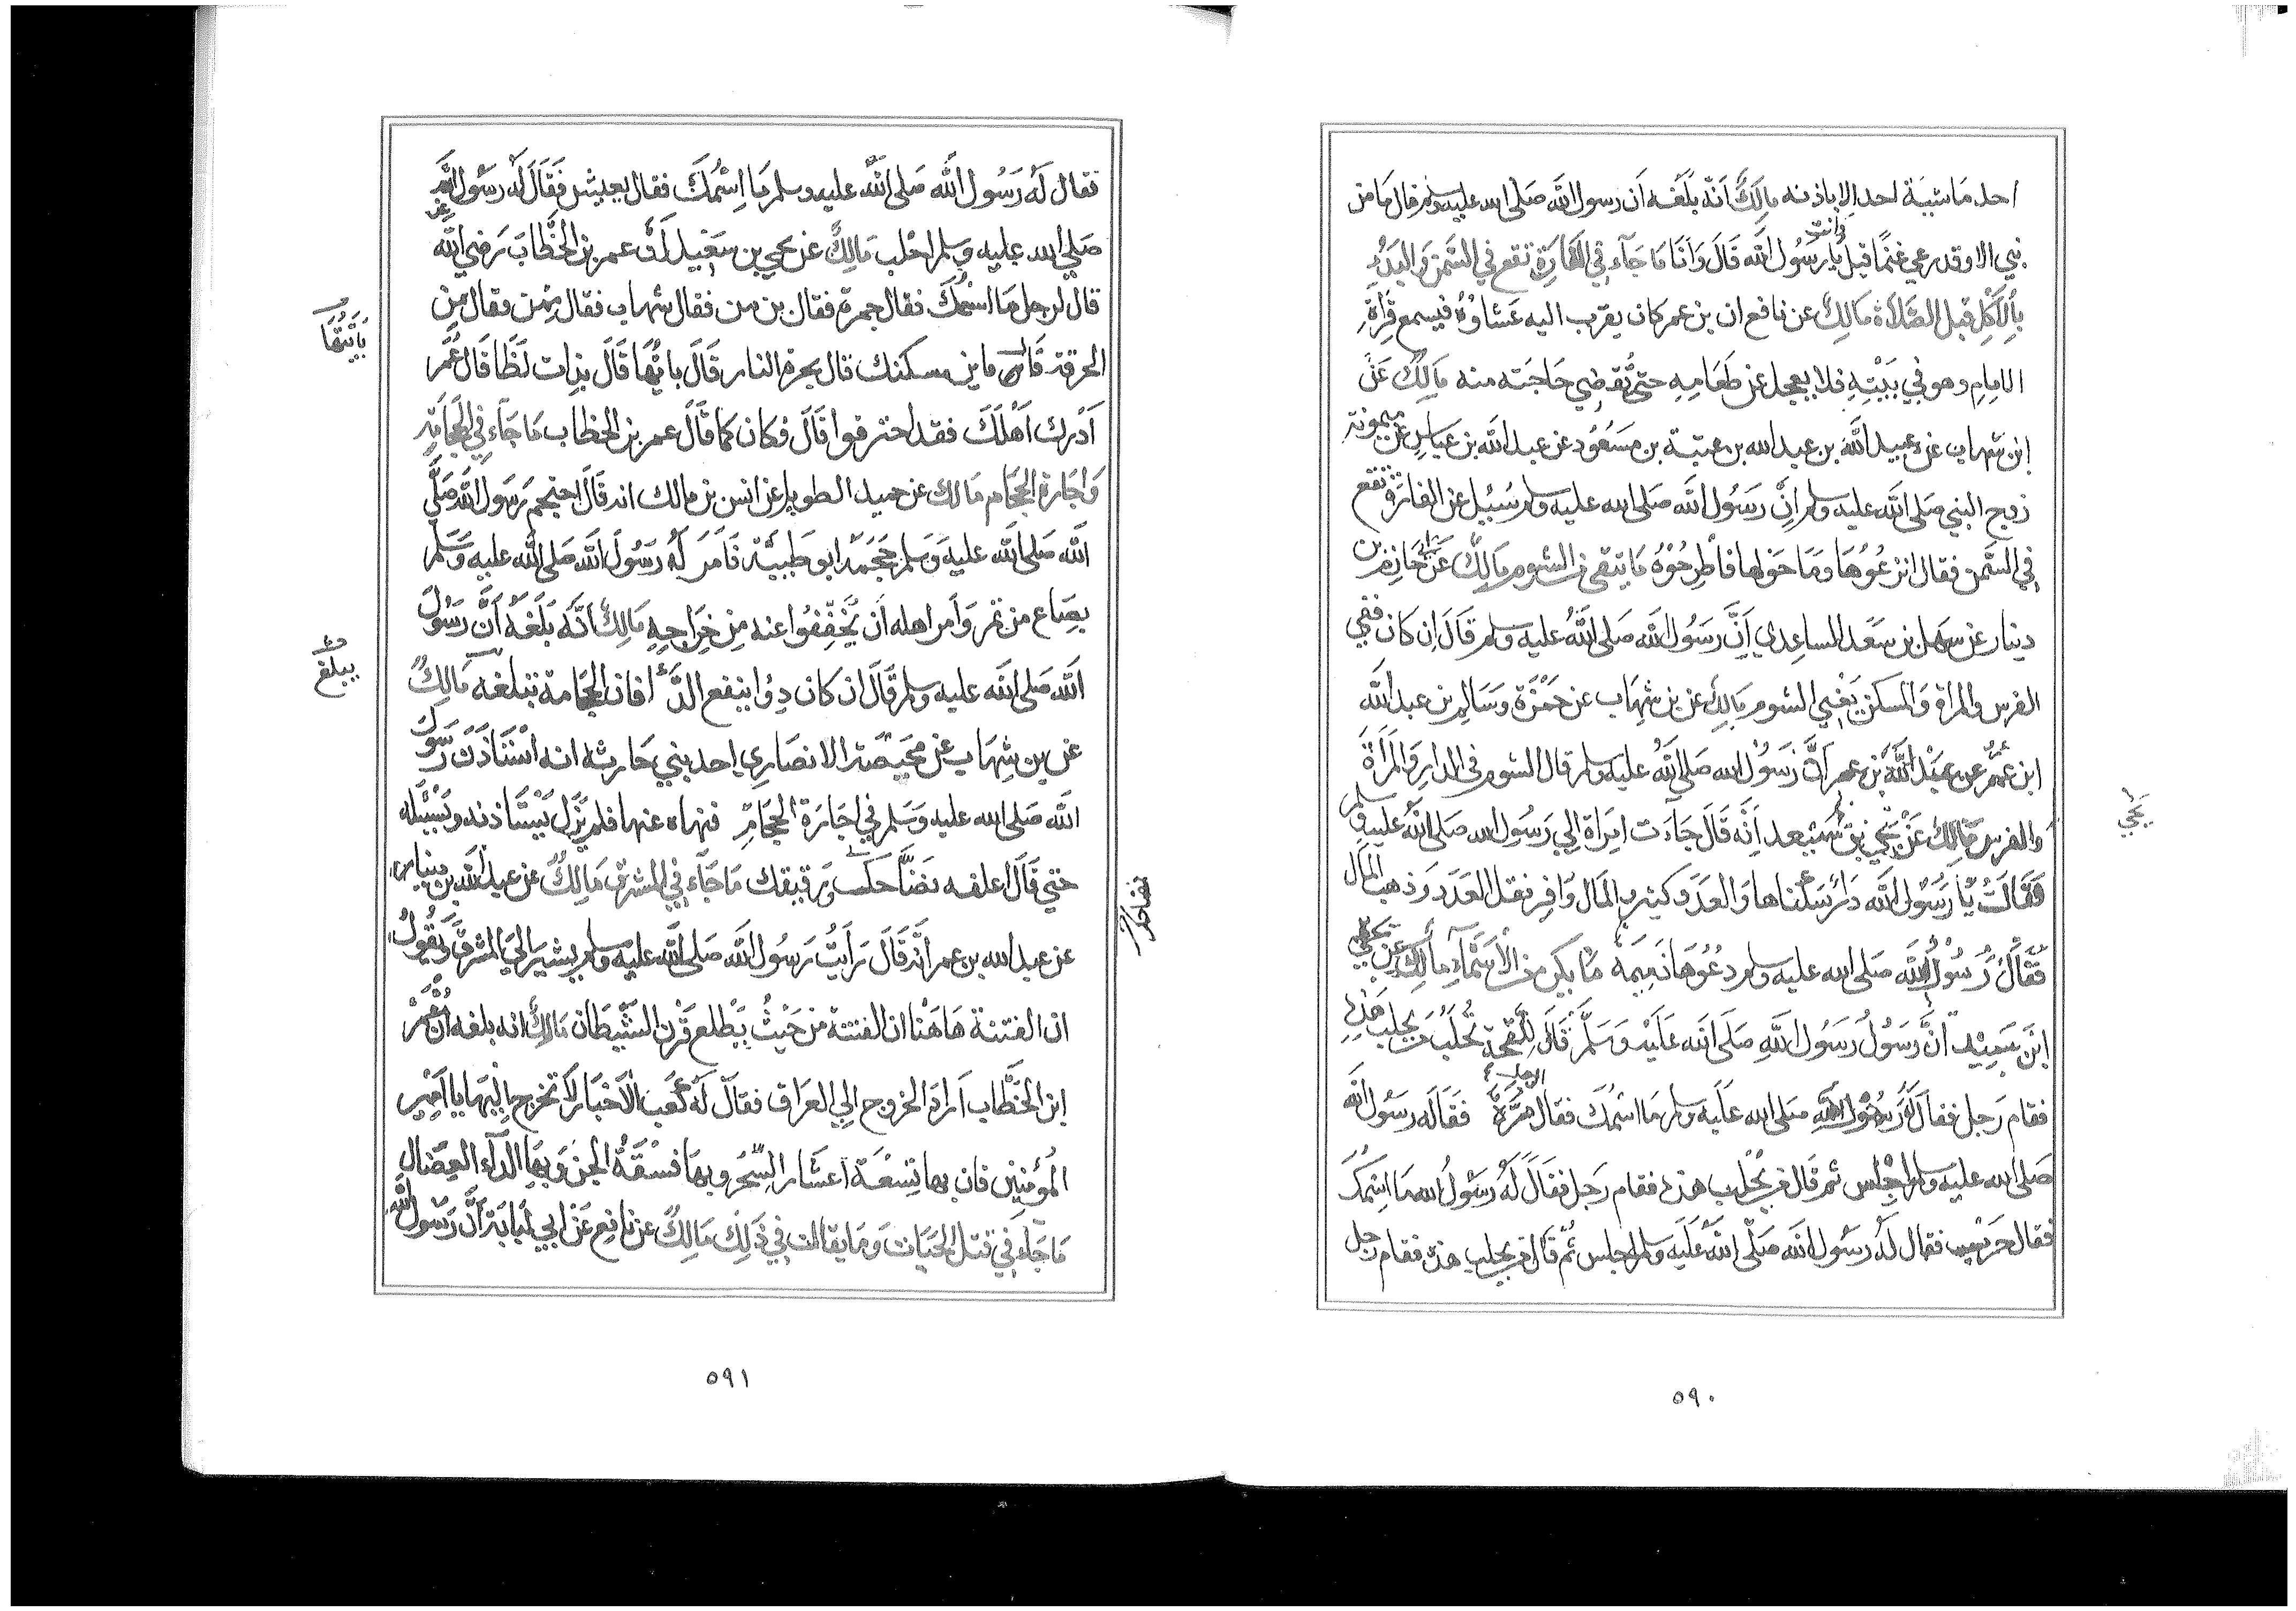 احد ماشية احد الا باذنه مالك انه بلغه ان رسول الله صلى الله عليه وسلم قال ما من
نبي الا وقد رعي غنما قيل وانت يا رسول الله قال وانا ما جاء في الفارة تقع في السمن والبدء
بالاكل قبل الصلاة مالك عن نافع ان بن عمر كان يقرب اليه عشاوه فيسمع قراة
الامام وهو في بيته فلا يعجل عن طعامه حتي تقضي حاجته منه مالك عن
ابن شهاب عن عبيد الله بن عبد الله بن عتبة بن مسعود عن عبد الله بن عباس عن ميمونة
زوج النبي صلى الله عليه وسلم ان رسول الله صلى الله عليه وسلم سئيل عن الفارة تقع
في السمن فقال انزعوها وما حولها فاطرحوه ما يتقى من الشوم مالك عن ابي حازم بن
دينار عن سهل بن سعد الساعدي ان رسول الله صلى الله عليه وسلم قال ان كان ففي
الفرس والمراة والمسكن يعني الشوم مالك عن بن شهاب عن حمزة وسالم بن عبد الله
ابن عمر عن عبد الله بن عمر ان رسول الله صلى الله عليه وسلم قال الشوم في الدار والمراة
والفرس مالك عن يحي بن سعيد انه قال جاءت امراة الي رسول الله صلى الله عليه وسلم
يحي
فقالت يا رسول الله دار سكناها والعدد كثير والمال وافر فقل العدد وذهب المال
فقال رسول الله صلى الله عليه وسلم دعوها ذميمة ما يكره من الاسماء مالك عن يحيى
ابن سعيد ان رسول رسول الله صلى الله عليه وسلم قال للقحة تحلب من يحلب هذه
فقام رجل فقال له رسول الله صلى الله عليه وسلم ما اسمك فقال الرجل مرة فقال له رسول الله
صلى الله عليه وسلم اجلس ثم قال من يحلب هذه فقام رجل فقال له رسول الله ما اسمك
فقال حرب فقال له رسول الله صلى الله عليه وسلم اجلس ثم قال من يحلب هذه فقام رجل
٥٩٠
فقال له رسول الله صلى الله عليه وسلم ما اسمك فقال يعيش فقال له رسول الله
صلي الله عليه وسلم احلب مالك عن يحي بن سعيد ان عمر بن الخطاب رضي الله عنه
قال لرجل ما اسمك فقال جمرة فقال بن من فقال شهاب فقال ممن وقال من
الحرقة قال اين مسكنك قال بحرة النار قال بايها قال بذات لظا قال عمر
بايتها
ادرك اهلك فقد احترقوا قال فكان كما قال عمر بن الخطاب ما جاء في الحجامة
واجارة الحجام مالك عن حميد الطويل عن انس بن مالك انه قال احتجم رسول الله صلى
الله صلى الله عليه وسلم حجمه ابو طيبة فامر له رسول الله صلى الله عليه وسلم
بصاع من تمر وامر اهله ان يخففوا عنه من خراجه مالك انه بلغه ان رسول
الله صلى الله عليه وسلم قال ان كان دوا ينفع الداء فان الحجامة تبلغه مالك
يبلغ
عن بن شهاب عن محيصة الانصاري احد بني حارثة انه استاذن رسول
الله صلى الله عليه وسلم في اجارة الحجام فنهاه عنها فلم يزل يستاذنه ويسئله
حتي قال اعلفه نضاحك ورقيقك ما جاء في المشرق مالك عن عبد الله بن دينار
نضاحك
عن عبد الله بن عمر انه قال رايت رسول الله صلى الله عليه وسلم يشير الي المشرق ويقول
ان الفتنة هاهنا ان الفتنة من حيث يطلع قرن الشيطان مالك انه بلغه ان عمر
ابن الخطاب اراد الخروج الي العراق فقال له كعب الاحبار لا تخرج اليها يا امير
المؤمنين فان بها تسعة اعشار السحر وبها فسقة الجن وبها الداء العضال
ما جاء في قتل الحيات وما يقال في ذلك مالك عن نافع عن ابي لبابة ان رسول الله
٥٩١